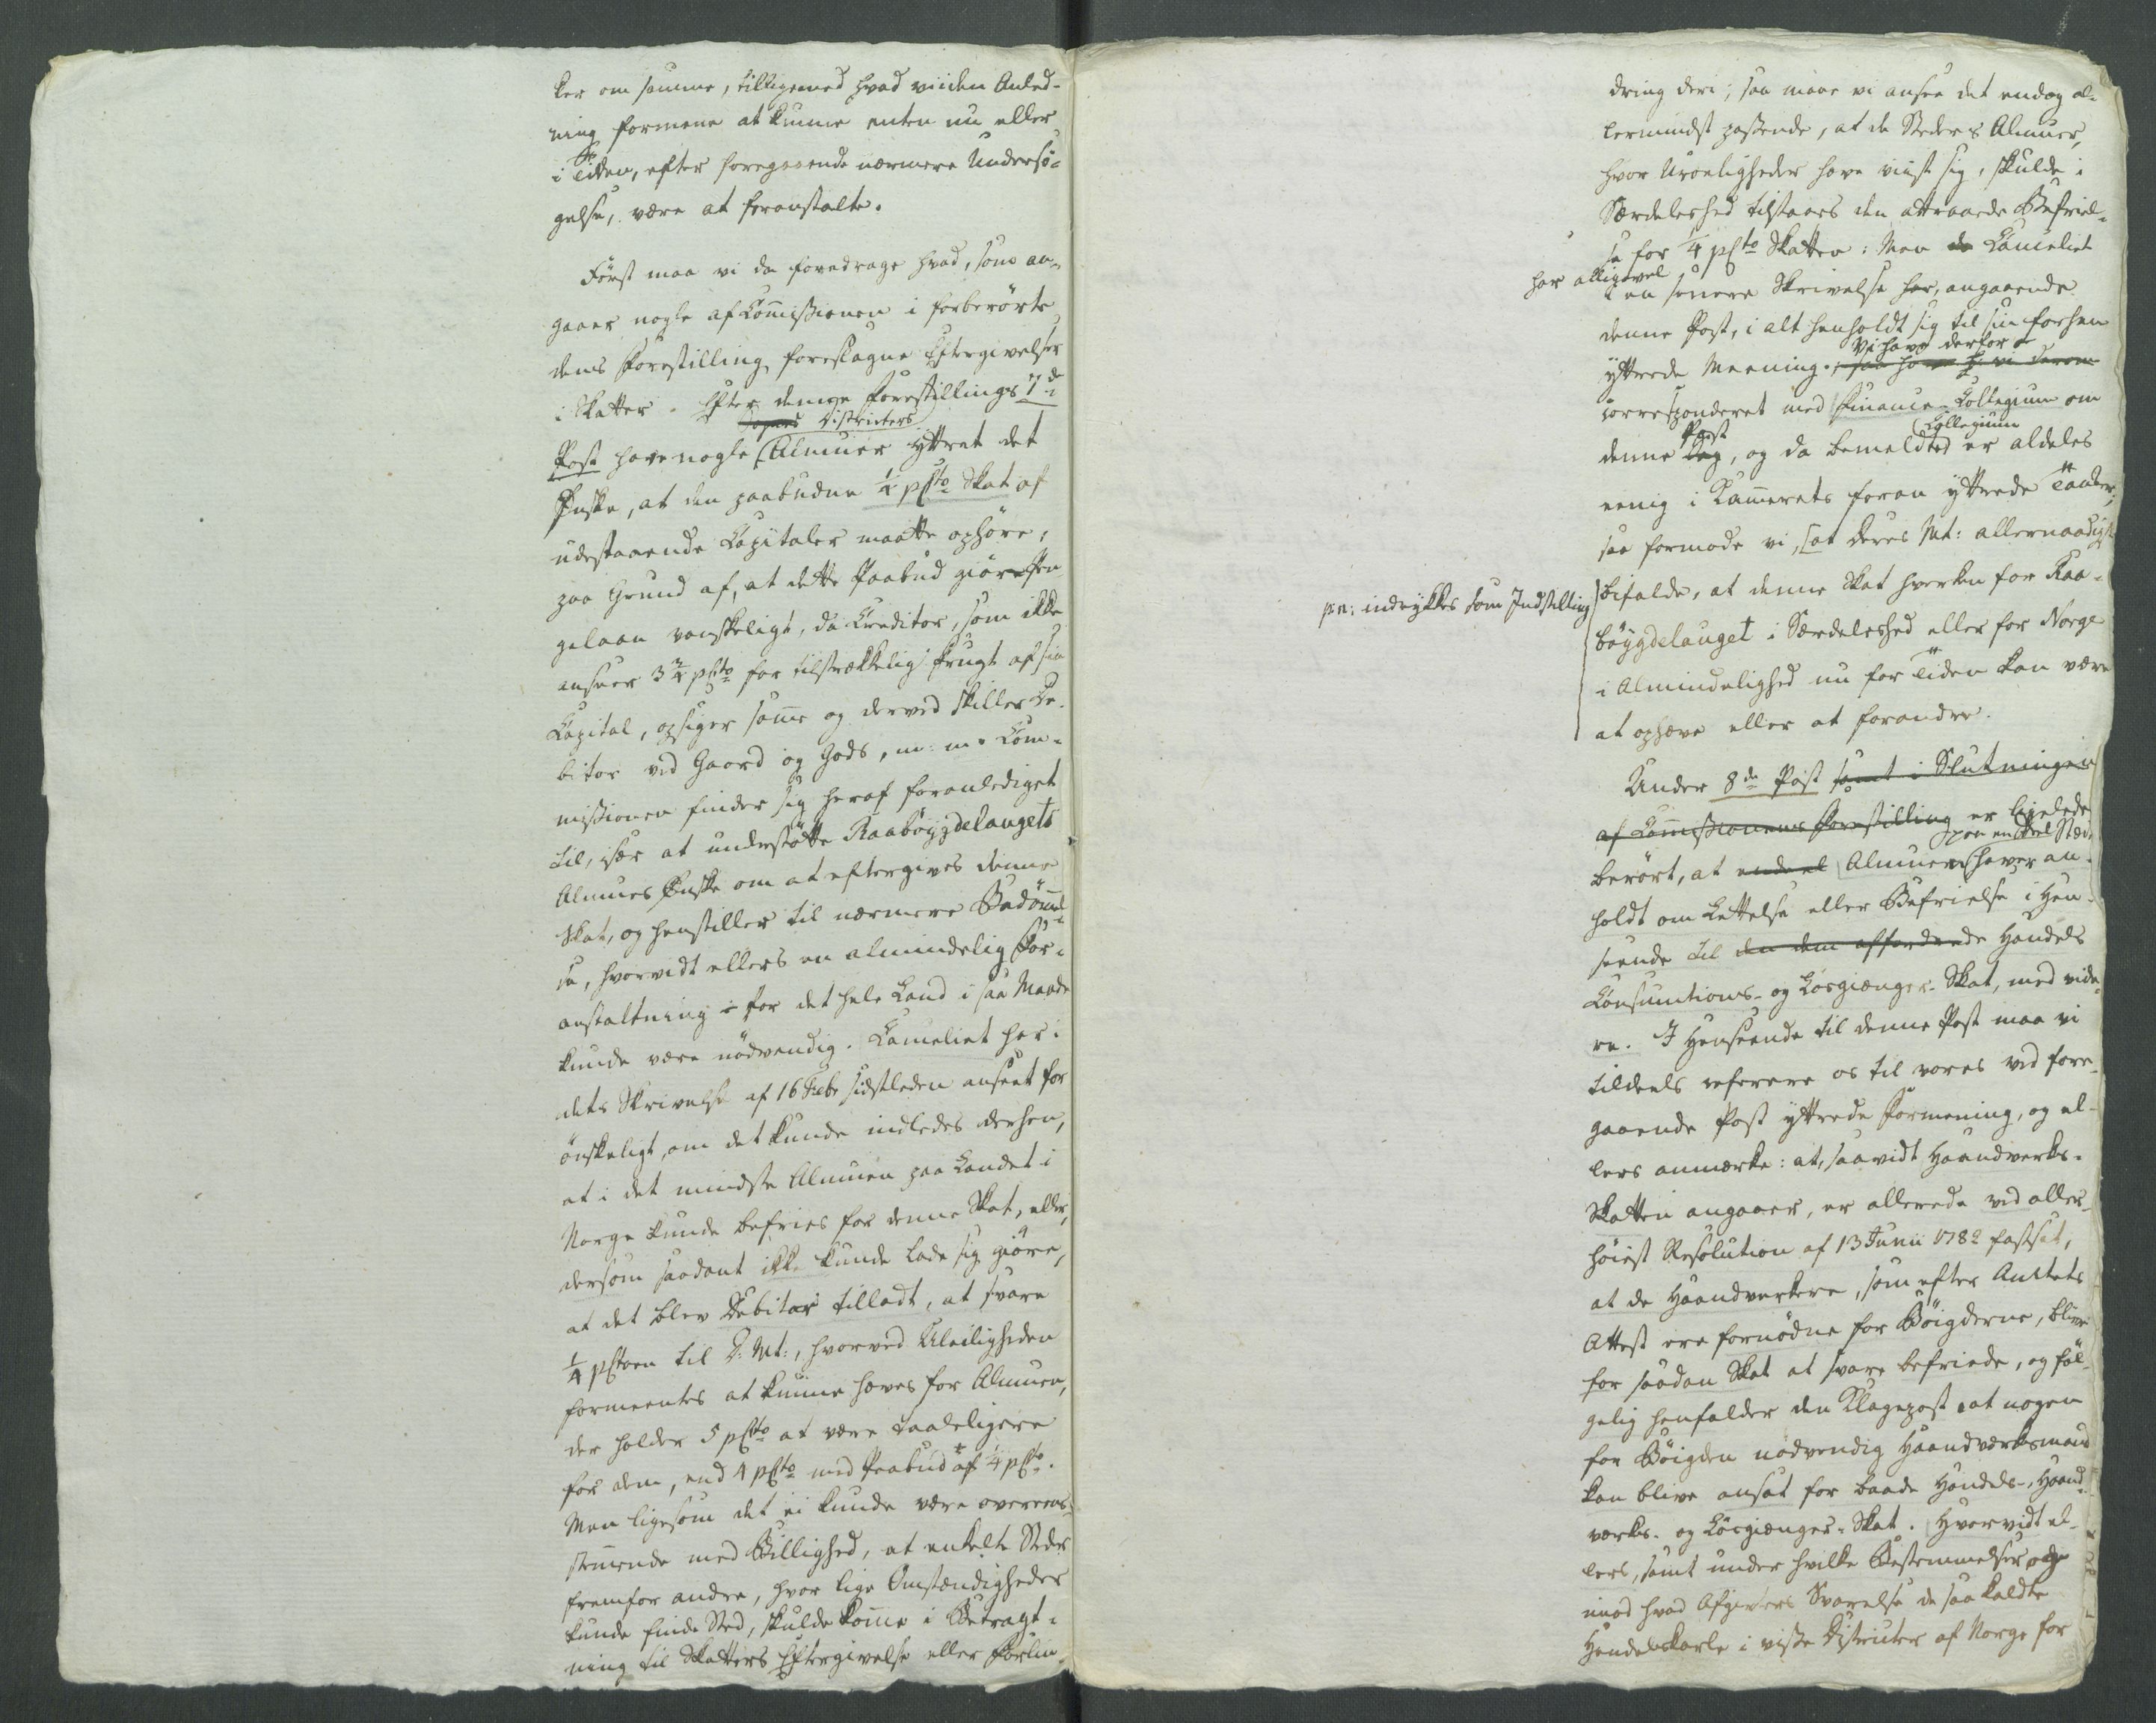 ker om samme, tilligemed hvad vi i den Anled-
ning formene at kunne enten nu eller
i Tiden, efter foregaaende nærmere Undersø-
gelse, være at foranstalte.
Først maa vi da foredrage hvad, som an-
gaaer nogle af Com̄issionen i forberørte
dens Forestilling foreslagne Eftergivelser
i Skatter. Efter denne Forestillings 7de
Districters
Post have nogle Almuer yttret det
Ønske, at den paabudne ¼ pCto Skat af
udestaaende Capitaler maatte ophøre,
paa Grund af, at dette Paabud giør Pen-
gelaan vanskeligt, da Creditor, som ikke
anseer 3¾ pCto for tilstrækkelig Frugt af sin
Capital, opsiger sam̄e og derved skiller De-
bitor ved Gaard og Gods, m: m. Com-
missionen finder sig heraf foranlediget
til, især at understøtte Raabøygdelaugets
Almues Ønske om at eftergives denne
Skat, og henstiller til nærmere Bedøm̄el-
se, hvorvidt ellers en almindelig For-
anstaltning for det hele Land i saa Maade
kunde være nødvendig. Cancelliet har i
dets Skrivelse af 16 Febr sidstleden anseet for
ønskeligt, om det kunde indledes derhen,
at i det mindste Almuen paa Landet i
Norge kunde befries for denne Skat, eller,
dersom saadant ikke kunde lade sig giøre,
at det blev Debitor tilladt, at svare
¼ pCtoen til D: Mt:, hvorved Uleiligheden
formeentes at kunne hæves for Almuen,
der holder 5 pCto at være taaleligere
for dem, end 4 pCto med Paabud af ¼ pCto.
Men ligesom det ei kunde være overeens-
stem̄ende med Billighed, at enkelte Steder
fremfor andre, hvor lige Omstændigheder
kunde finde Sted, skulde kom̄e i Betragt-
ning til Skatters Eftergivelse eller Forlin-
dring deri; saa maae vi ansee det endog al-
lermindst passende, at de Steders Almuer,
hvor Uroeligheder have viist sig, skulde i
Særdeleshed tilstaaes den attraaede Befriel-
se for ¼ pCto Skatten: Men da Cancelliet
har alligevel
i en senere Skrivelse har, angaaende
denne Post, i alt henholdt sig til sin forhen
Vi have derfor
yttrede Meening., saa have vi derom
correspponderet med Finance-Collegium om
Post Collegium
denne Sag, og da bemeldte er aldeles
eenig i Kam̄erets foran yttrede Tanker;
saa formode vi, at Deres Mt: allernaadigst
pr. n: indrykkes som Indstilling
bifalde, at denne Skat hverken for Raa-
bøygdelauget i Særdeleshed eller for Norge
i Almindelighed nu for Tiden kan være
at ophæve eller at forandre.
Under 8de Post samt i Slutningen
af Com̄issionens Forestilling er ligeledes
paa en deel Stæder
berørt, at endeel Almuen haver an-
holdt om Lettelse eller Befrielse i Hen-
seende til den dem affordrede Handels
Consumtions- og Løsgiænger-Skat, med vide-
re. I Henseende til denne Post maa vi
tildeels referere os til vores ved fore-
gaaende Post yttrede Formening, og el-
lers anmærke: at, saavidt Haandverks-
Skatten angaaer, er allerede ved aller-
høiest Resolution af 13 Junii 1782 fastsat,
at de Haandverkere, som efter Amtets
Attest ere fornødne for Bøigderne, blive
for saadan Skat at svare befriede, og føl-
gelig henfalder den Klagepost at nogen
for Bøigden nødvendig Haandverksmand
kan blive ansat for baade Handels-, Haand-
verks- og Løsgiænger-Skat. Hvorvidt el-
lers, samt under hvilke Bestemmelser og
imod hvad Afgivters Svarelse de saa kaldte
Handelskarle i visse Districter af Norge for